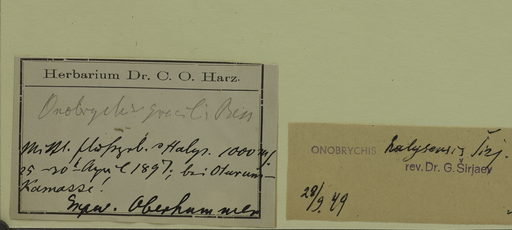 Herbarium Dr. C. O. Harz.
Onobrychis gracilis Boiss
Mittl. flößgeb. Halys. 1000 m
25-30 April 1897. bei
Kamasse!
Oberhummer
ONOBRYCHIS halysensis Širj.
rev. Dr. G. Širjaev
28/9. 49